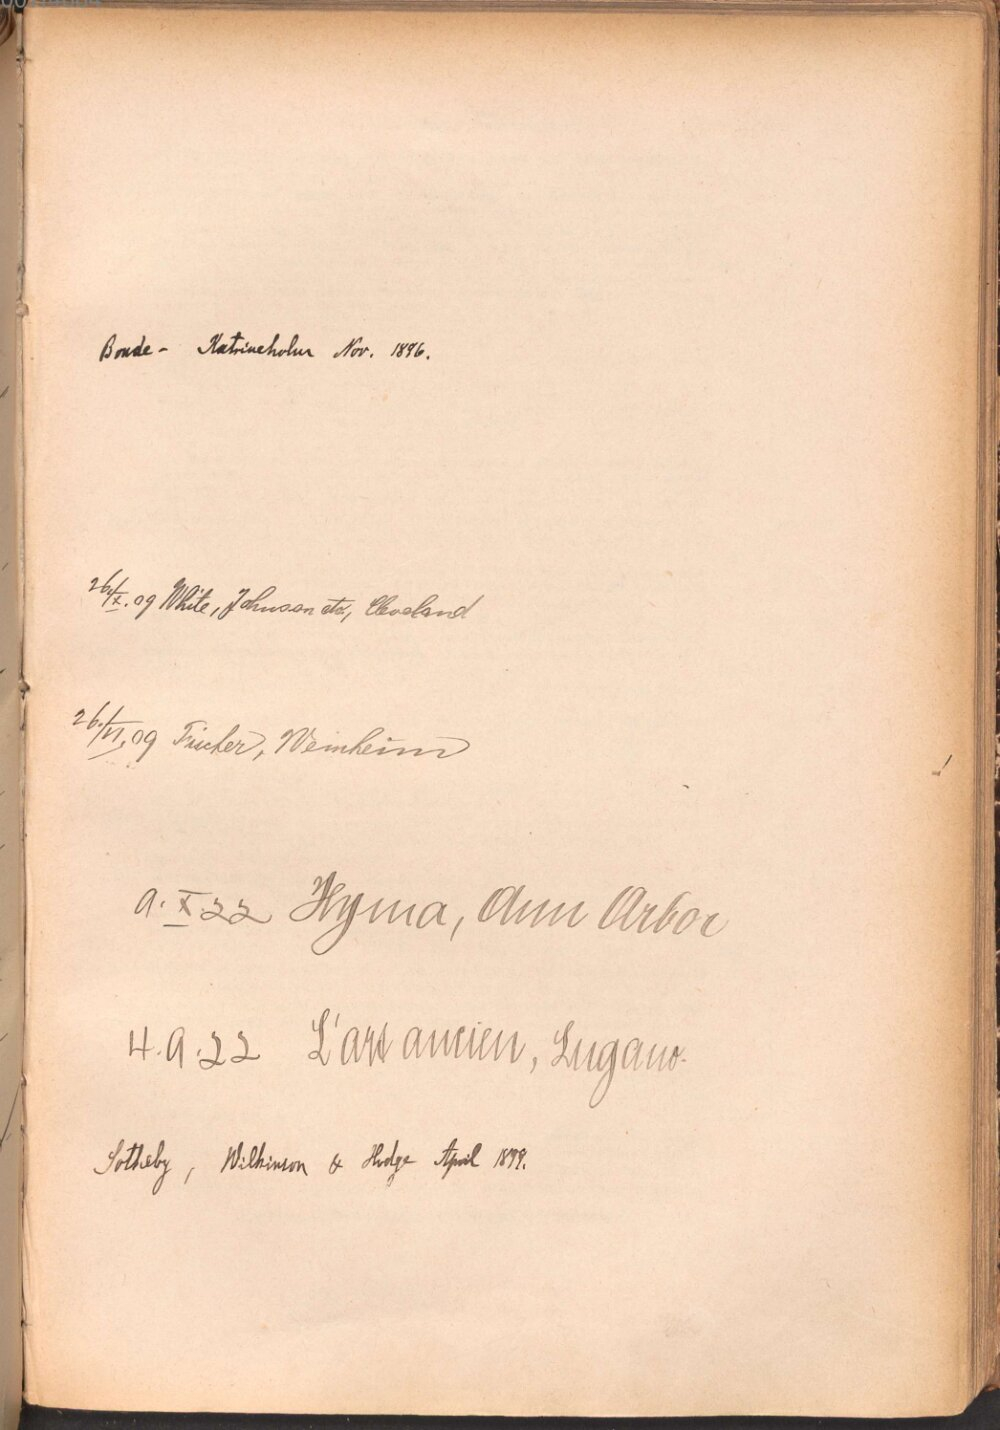 Bonde - Katrineholm Nov. 1896.
26/X.09 White, Johnson etc, Cleveland
26./VI.09 Fischer, Weinheim
9.X.22 Hyma, Ann Arbor
4.9.22 L'art ancien, Lugano.
Sotheby, Wilkinson & Hodge April 1899.